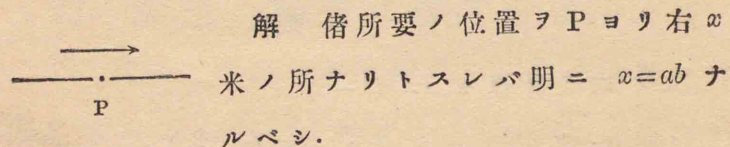 解 偖所要ノ位置ヲPヨリ右x
米ノ所ナリトスレバ明ニ x=abナ
ルベシ.
P